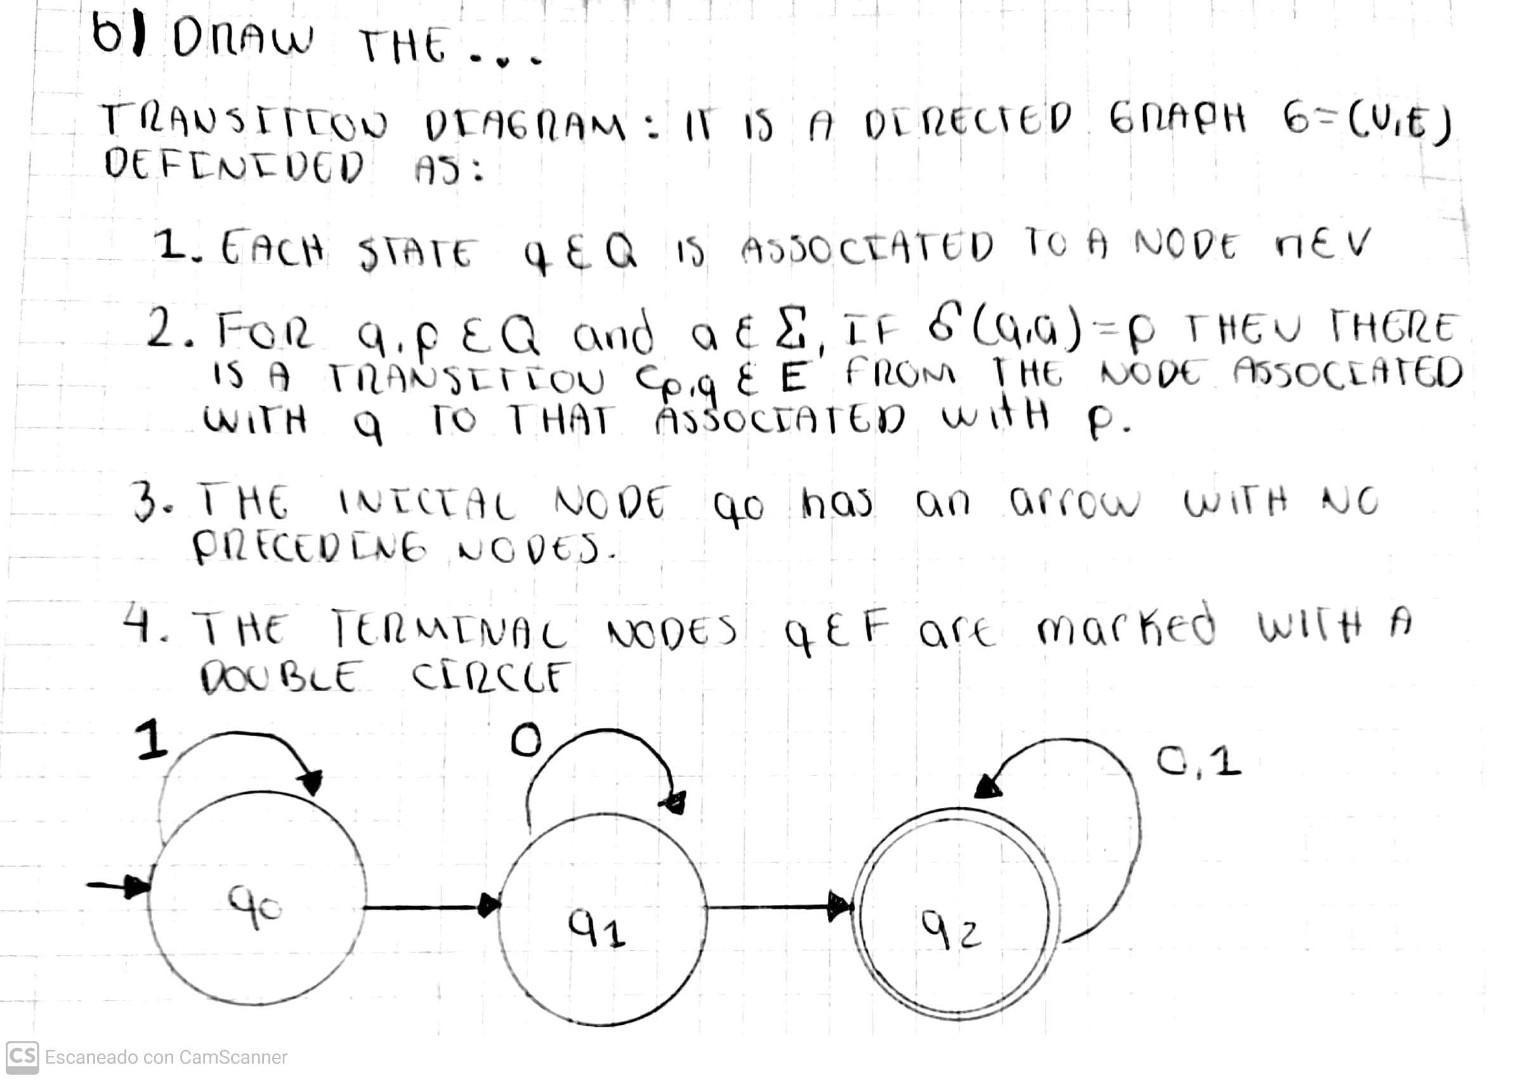 b) DRAW THE...
TRANSITION DIAGRAM: IT IS A DIRECTED GRAPH G=(V,E)
DEFINIDED AS:
1. EACH STATE q ∈ Q IS ASSOCIATED TO A NODE n ∈ V
2. FOR q,p ∈ Q and a ∈ Σ, IF δ(q,a)=p THEN THERE
IS A TRANSITION ep,q ∈ E FROM THE NODE ASSOCIATED
WITH q TO THAT ASSOCIATED WITH p.
3. THE INICIAL NODE q0 has an arrow WITH NO
PRECEDING NODES.
4. THE TERMINAL NODES q ∈ F are marked WITH A
DOUBLE CIRCLE
1 0 0,1
q0 q1 q2
CS Escaneado con CamScanner